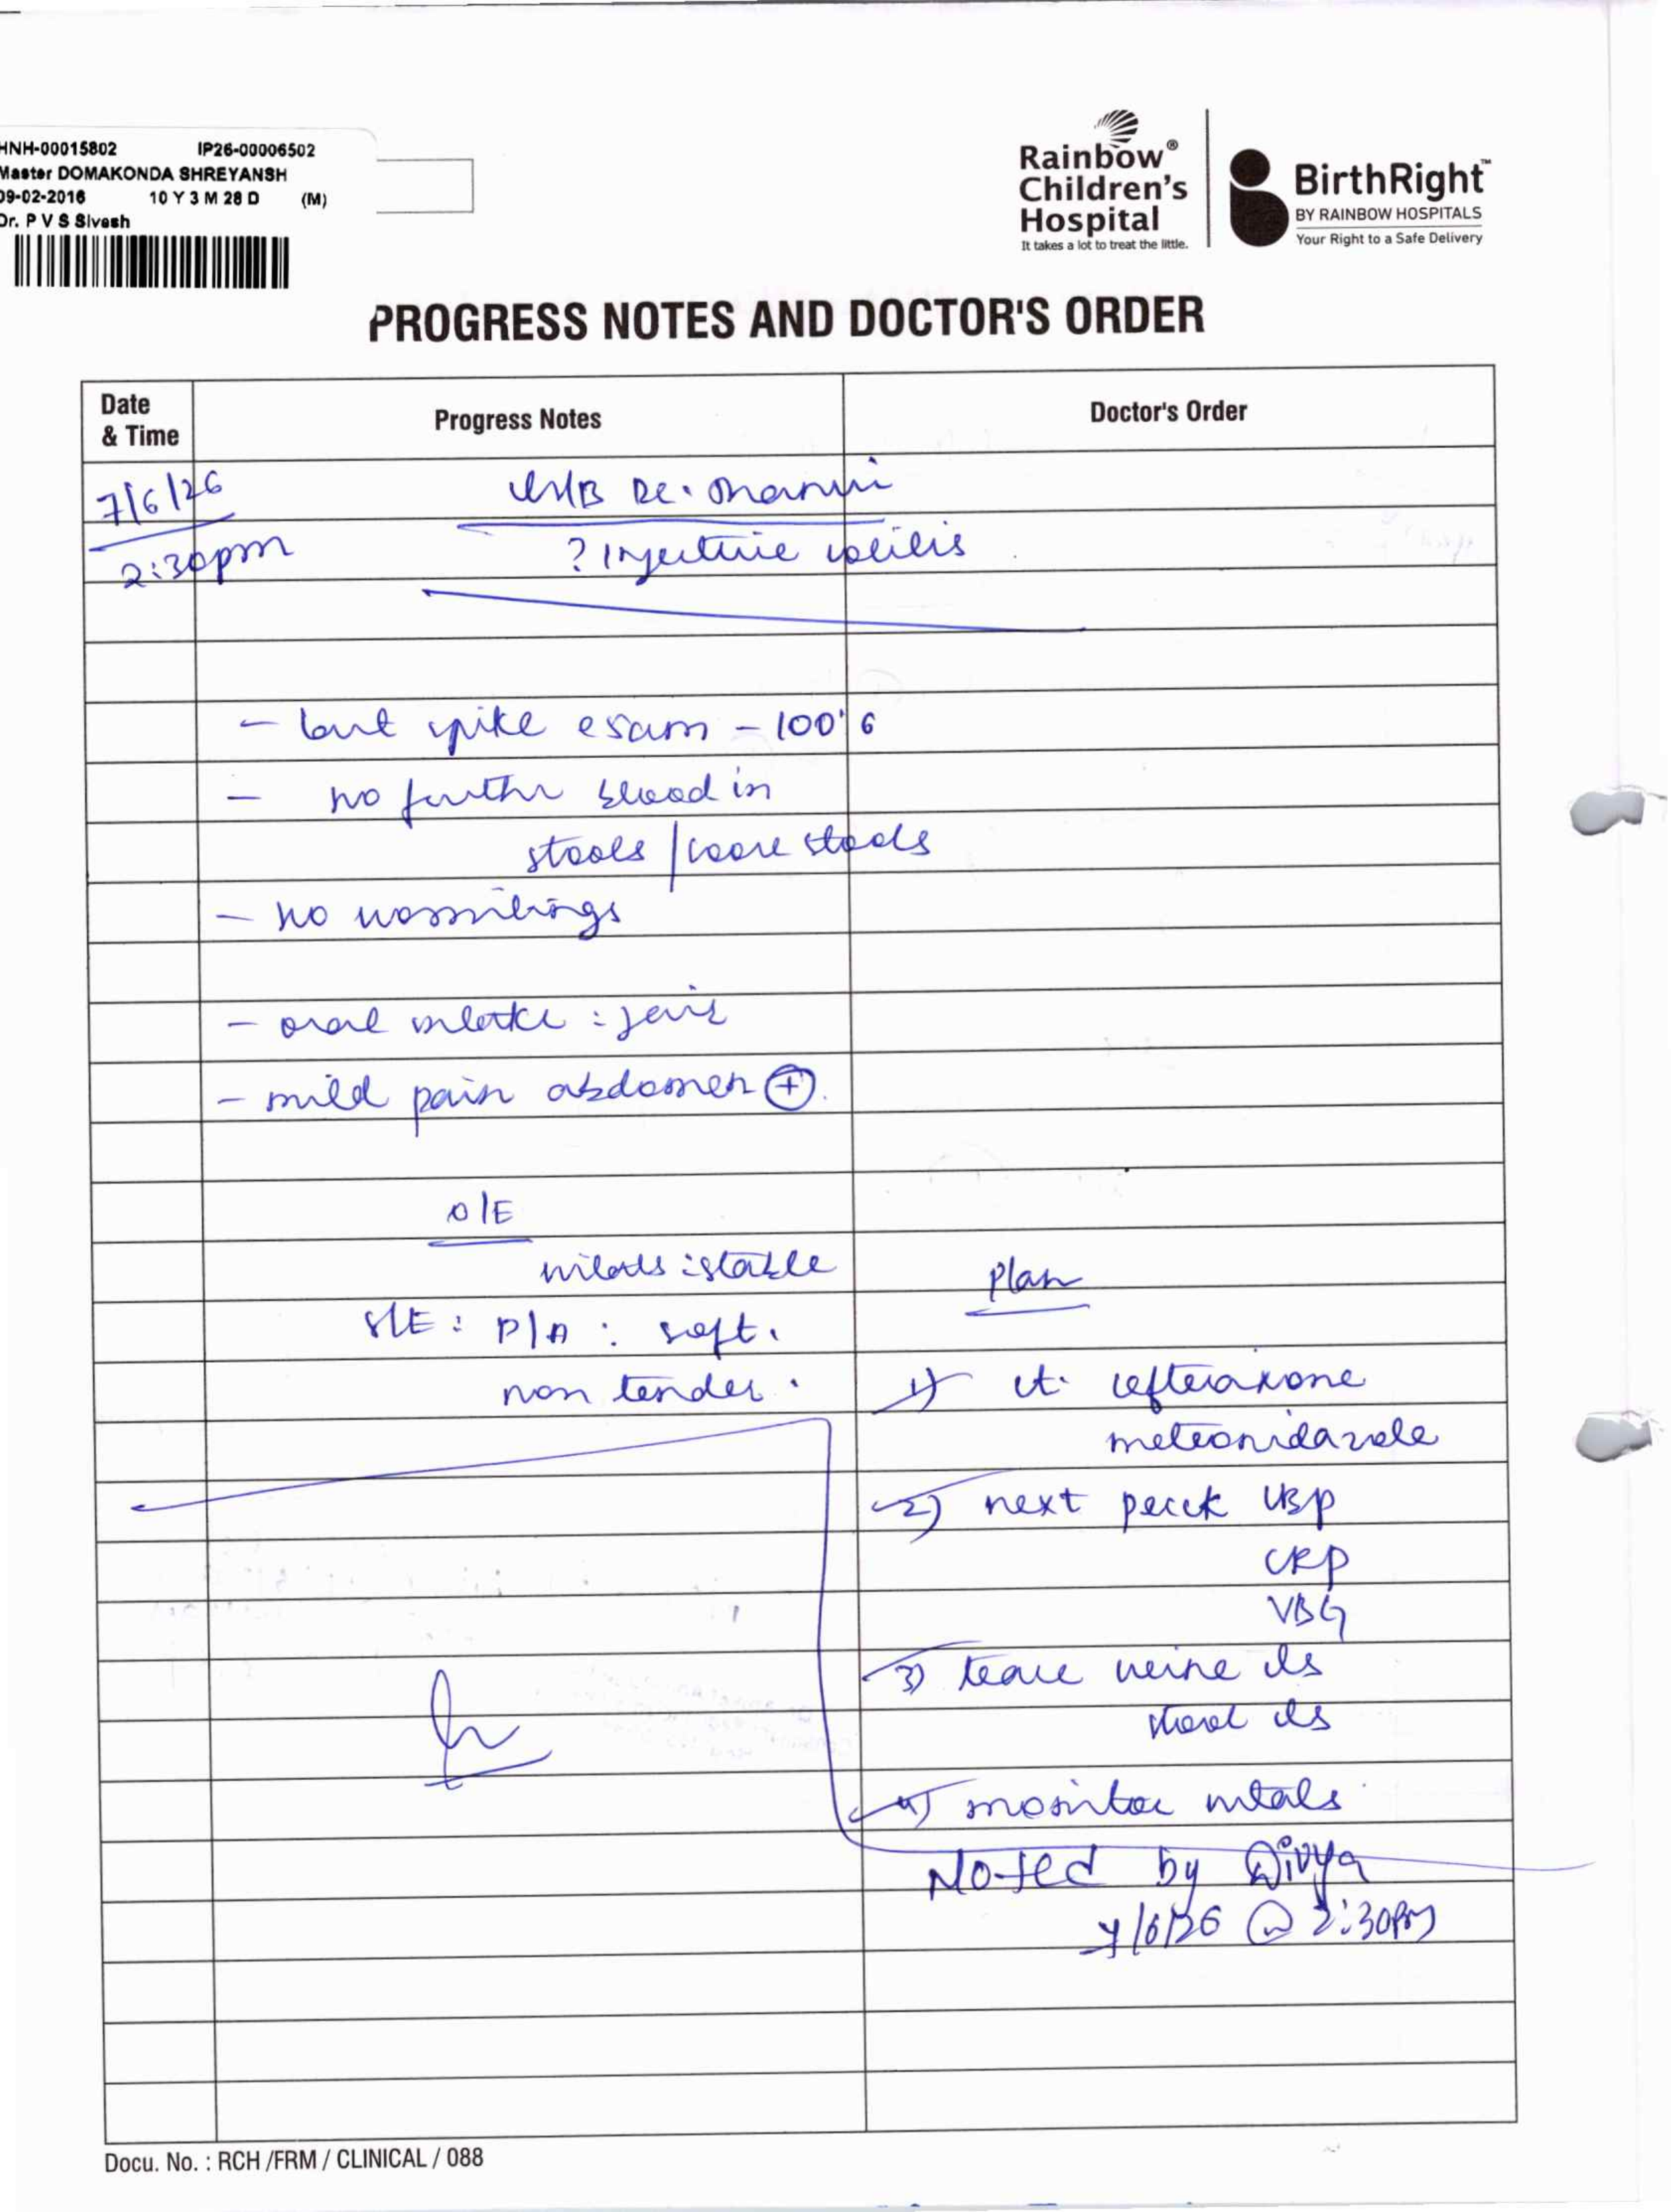 HNH-00015802 IP26-00006502
Master DOMAKONDA SHREYANSH
09-02-2016 10 Y 3 M 28 D (M)
Dr. P V S Sivesh
Rainbow®
Children's
Hospital
It takes a lot to treat the little.
BirthRight™
BY RAINBOW HOSPITALS
Your Right to a Safe Delivery
PROGRESS NOTES AND DOCTOR'S ORDER
Date & Time Progress Notes Doctor's Order
7/6/26
2:30pm
S/B Dr.
? Infective colitis
- last spike 8am - 100.6
- no further blood in
stools / loose stools
- no vomitings
- oral intake : fair
- mild pain abdomen ⊕
O/E
vitals : stable
S/E : P/A : soft.
non tender.
Plan
1) ct. ceftriaxone
metronidazole
2) next prick CBP
CRP
VBG
3) trace urine c/s
stool c/s
4) monitor vitals
Noted by Divya
7/6/26 @ 2:30pm
Docu. No. : RCH /FRM / CLINICAL / 088